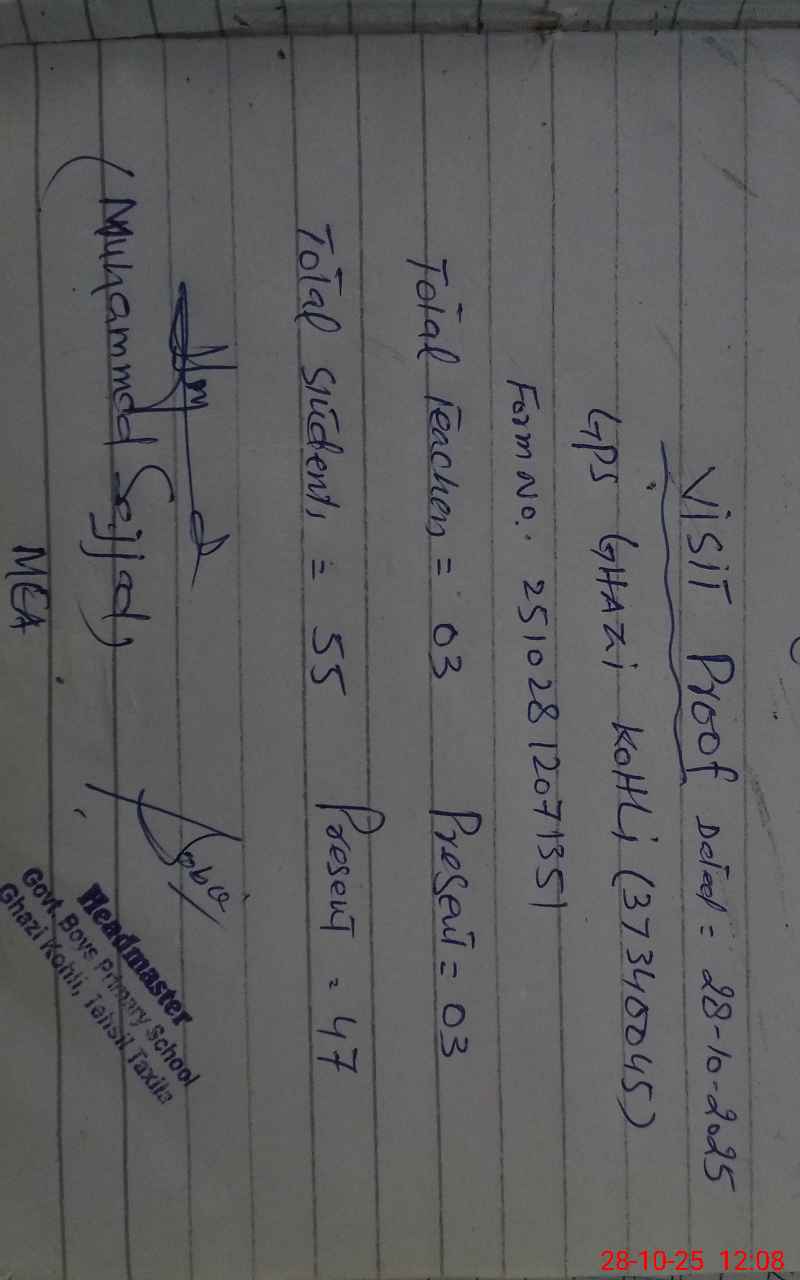 Visit Proof Dated = 28-10-2025
GPS GHAZi KOHLi (37340045)
Form No. 25102812071351
Total Teachers = 03 Present = 03
Total Students = 55 Present = 47
(Muhammad Sajjad)
MEA
Headmaster
Govt. Boys Primary School
Ghazi Kohli, Tehsil Taxila
28-10-25 12:08